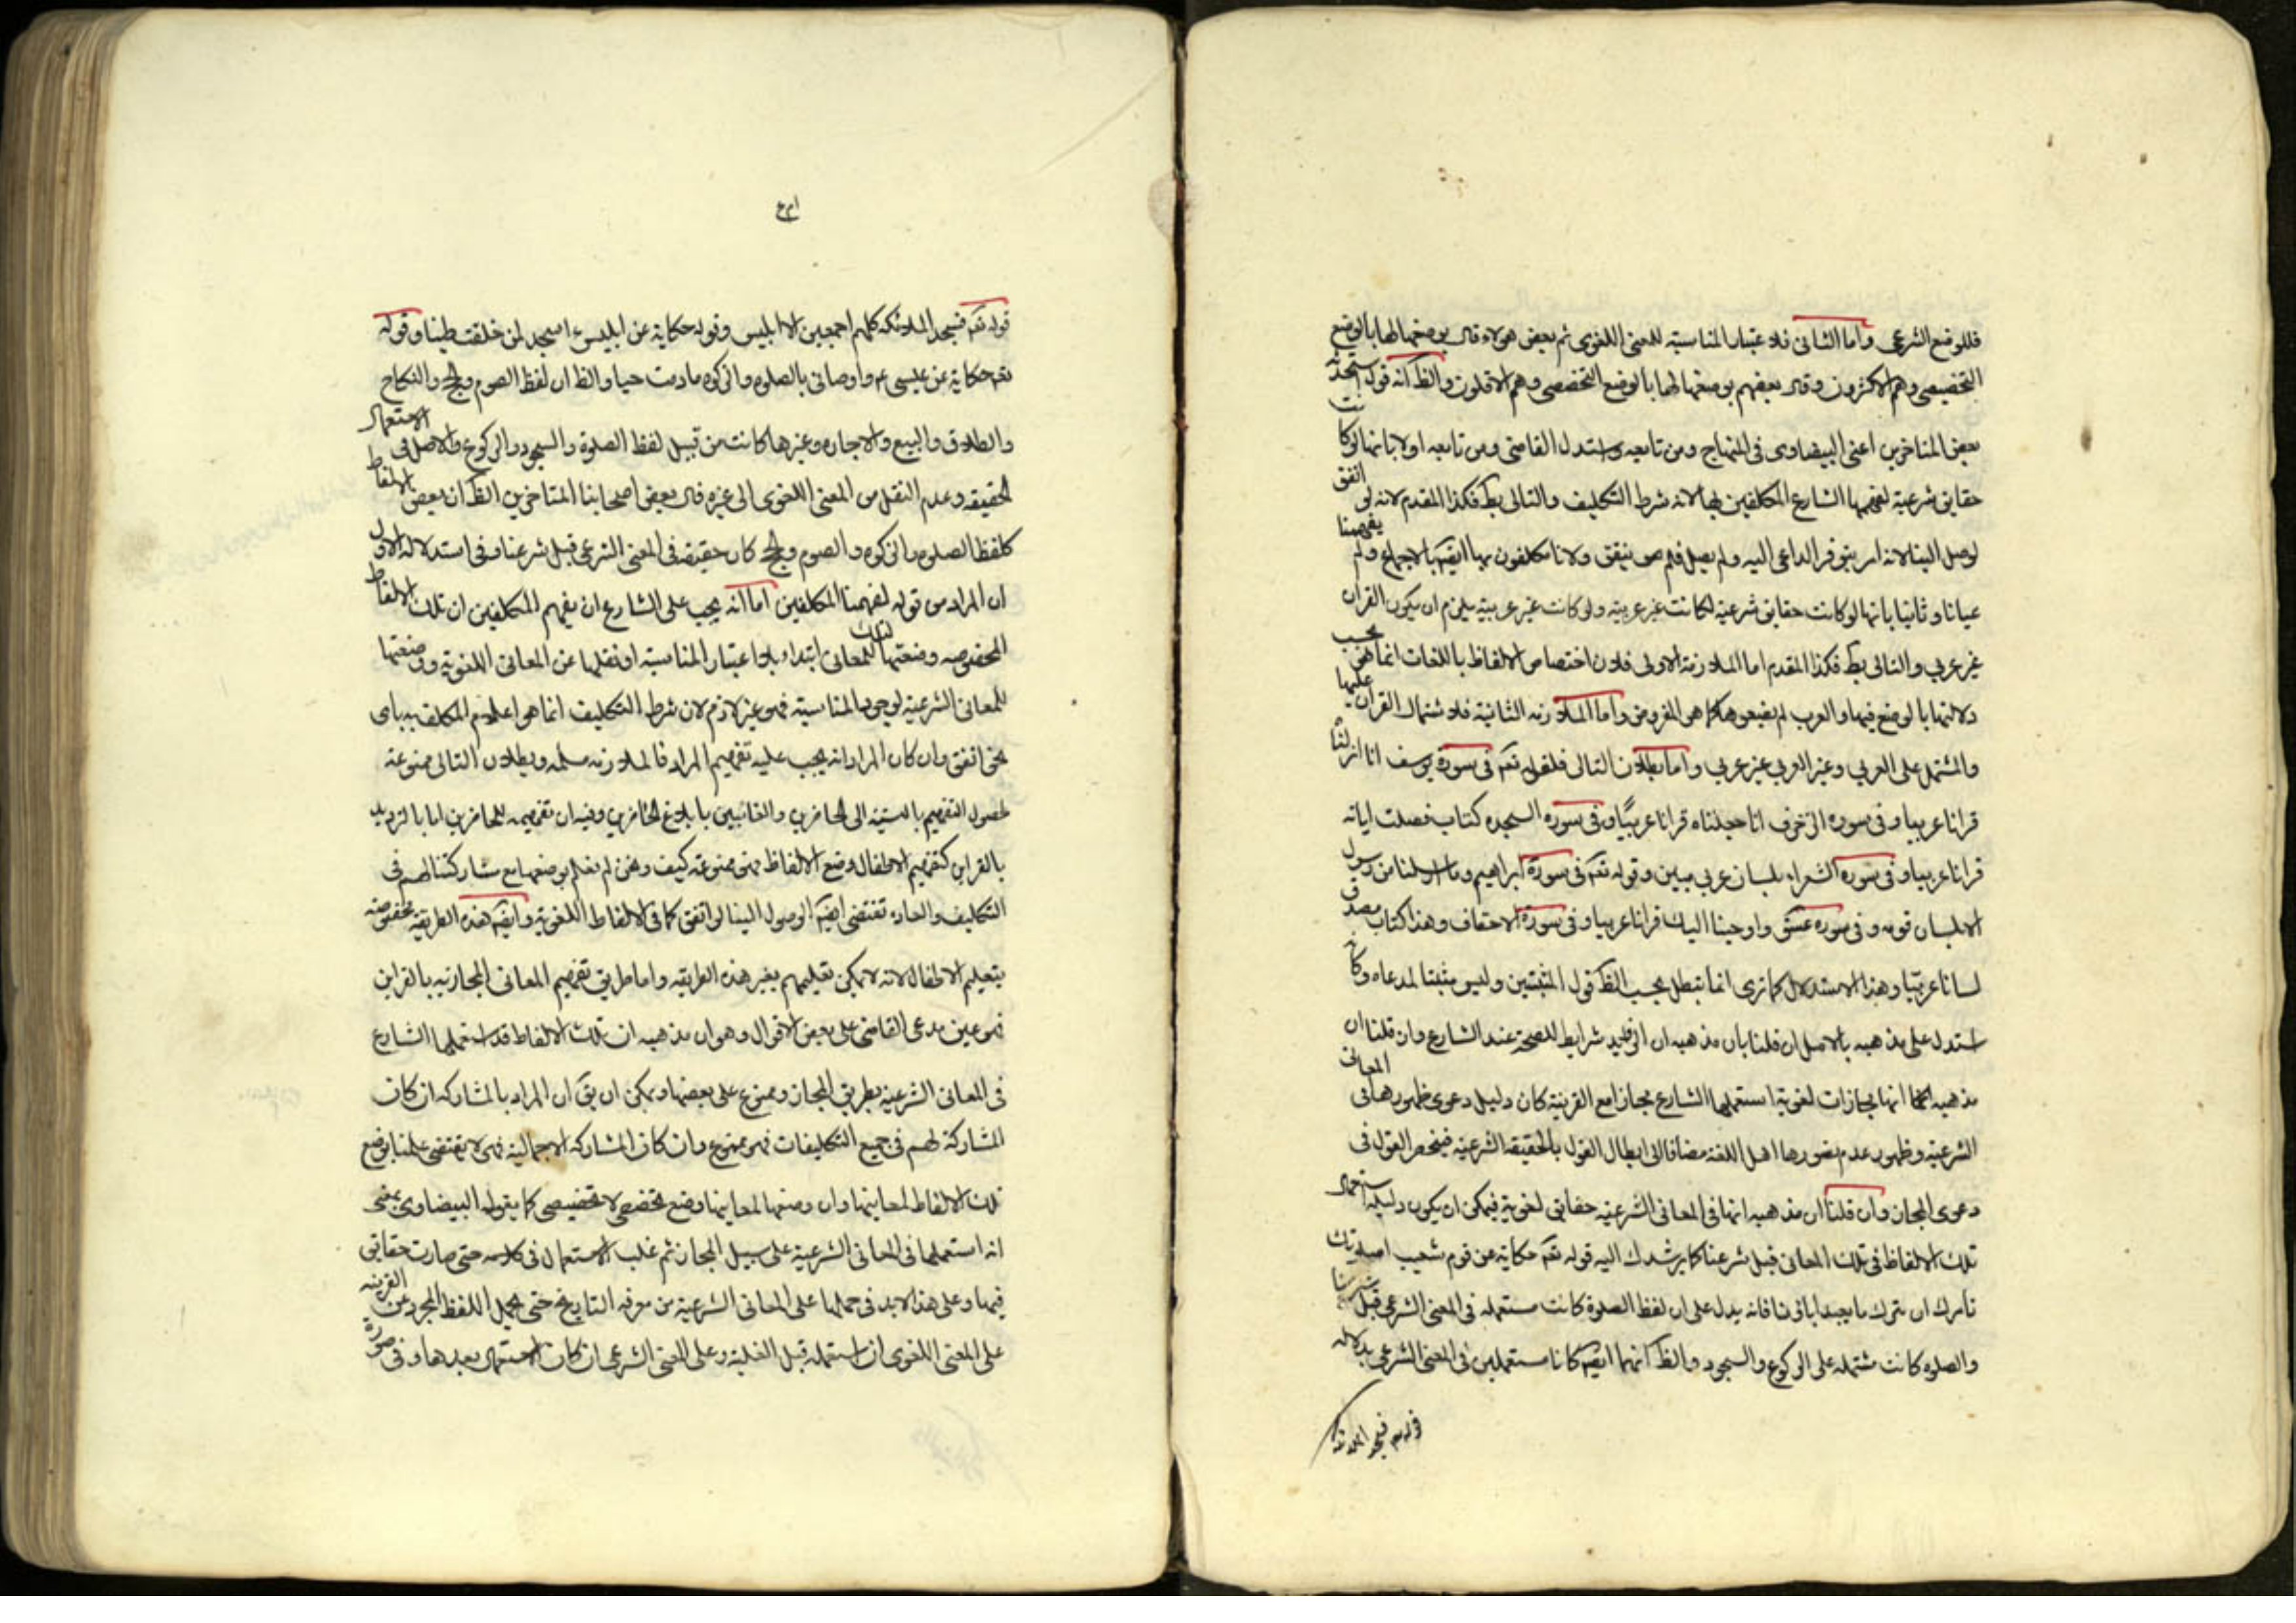 فللوضع الشرعي واما الثاني فلاعتبار المناسبة للمعنى اللغوي ثم بعض هولاء قال بوضعها لها بالوضع
التخصيصي وهم الاكثرون وقال بعضهم بوضعها لها بالوضع التخصصي وهم الاقلون والظ انه قول استحدثه
بعض المتاخرين اعني البيضاوي في المنهاج ومن تابعه واستدل القاضي ومن تابعه اولا بانها لو كانت
حقايق شرعية لفهمها الشارع المكلفين بها لانه شرط التكليف والتالي بط فكذا المقدم لانه لو اتفق
لوصل الينا لانه امر يتوفر الداعي اليه ولم يصل فلم يتفق ولانا مكلفون بها ايضا بالاجماع ولم يفهمنا
عيانا وثانيا بانها لو كانت حقايق شرعية لكانت غير عربية ولو كانت غير عربية يلزم ان يكون القران
غير عربي والتالي بط فكذا المقدم اما الملازمة الاولى فلان اختصاص الالفاظ باللغات انما هي بحسب
دلالتها بالوضع فيها والعرب لم يضعوها كما هو المفروض واما الملازمة الثانية فلاشتمال القران عليها
والمشتمل على العربي وغير العربي غير عربي واما بطلان التالي فلقوله تعم في سورة يوسف انا انزلناه
قرانا عربيا وفي سورة الزخرف انا جعلناه قرانا عربيا وفي سورة السجده كتاب فصلت اياته
قرانا عربيا وفي سورة الشعراء بلسان عربي مبين وقوله تعم في سورة ابراهيم وما ارسلنا من رسول
الا بلسان قومه وفي سورة عسق واوحينا اليك قرانا عربيا وفي سورة الاحقاف وهذا كتاب مصدق
لسانا عربيا وهذا الاستدلال كما ترى انما يبطل بحسب الظ قول المثبتين وليس مثبتا لمدعاه وكانه
استدل على مذهبه بالاصل ان قلنا بان مذهبه ان الزوايد شرايط للصحة عند الشارع وان قلنا ان
مذهبه انها مجازات لغوية استعملها الشارع مجازا مع القرينة كان دليل دعوى ظهورها في المعاني
الشرعية وظهور عدم تصورها اهل اللغة مضافا الى ابطال القول بالحقيقة الشرعية فينحصر القول في
دعوى المجاز وان قلنا ان مذهبه انها في المعاني الشرعية حقايق لغوية فيمكن ان يكون دليله استعمال
تلك الالفاظ في تلك المعاني قبل شرعنا كما يرشدك اليه قوله تعم حكاية عن قوم شعيب اصلوتك
تامرك ان نترك ما يعبد اباؤنا فانه يدل على ان لفظ الصلوة كانت مستعملة في المعنى الشرعي قبل شرعنا
والصلوة كانت مشتملة على الركوع والسجود والظ انهما ايضا كانا مستعملين في المعنى الشرعي بدلالة
قوله تعم فسجد الملائكة
قوله تعم فسجد الملائكة كلهم اجمعين الا ابليس وقوله حكاية عن ابليس ءاسجد لمن خلقت طينا وقوله
تعم حكاية عن عيسى عم واوصاني بالصلوة والزكوة مادمت حيا والظ ان لفظ الصوم والحج والنكاح
والطلاق والبيع والاجارة وغيرها كانت من قبيل لفظ الصلوة والسجود والركوع والاصل في الاستعمال
الحقيقة وعدم النقل من المعنى اللغوي الى غيره قال بعض اصحابنا المتاخرين الظ ان بعض الالفاظ
كلفظ الصلوة والزكوة والصوم والحج كان حقيقة في المعنى الشرعي قبل شرعنا وفي استدلاله الاول
ان المراد من قوله لفهمنا المكلفين اما انه يجب على الشارع ان يفهم المكلفين ان تلك الالفاظ
المخصوصة وضعتها لتلك المعاني ابتداء بلا اعتبار المناسبة او نقلها عن المعاني اللغوية ووضعتها
للمعاني الشرعية لوجود المناسبة فهو غير لازم لان شرط التكليف انما هو اعلام المكلف به باي
نحو اتفق وان كان المراد انه يجب عليه تفهيم المراد فالملازمة مسلمة وبطلان التالي ممنوعة
لحصول التفهيم بالنسبة الى الحاضرين والغائبين بابلاغ الحاضرين وفيه ان تفهيمه للحاضرين اما بالترديد
بالقراين كتفهيم الاطفال وضع الالفاظ فهو ممنوعة كيف ونحن لم نعلم بوضعها مع مشاركتنا لهم في
التكليف والعادة تقتضي ايضا الوصول الينا لو اتفق كما في الالفاظ اللغوية وايضا هذه الطريقة مخصوصة
بتعليم الاطفال لانه لا يمكن تعليمهم بغير هذه الطريقة واما طريق تفهيم المعاني المجازية بالقراين
فهو عين مدعى القاضي على بعض الاقوال وهو ان مذهبه ان تلك الالفاظ قد استعملها الشارع
في المعاني الشرعية بطريق المجاز وممنوع على بعضها ويمكن ان يق ان المراد بالمشاركة ان كان
المشاركة لهم في جميع التكليفات فهو ممنوع وان كان المشاركة الاجمالية فهي لا يقتضي علمنا بوضع
تلك الالفاظ لمعاينها وان وضعها لمعاينها وضع تخصصي لا تخصيصي كما يقوله البيضاوي بمعنى
انه استعملها في المعاني الشرعية على سبيل المجاز ثم غلب الاستعمال في كلامه حتى صارت حقايق
فيها وعلى هذا لابد في حملها على المعاني الشرعية من معرفة التاريخ حتى يحمل اللفظ المجرد عن القرينة
على المعنى اللغوي ان استعمله قبل الغلبة وعلى المعنى الشرعي ان كان الاستعمال بعدها وفي صورة